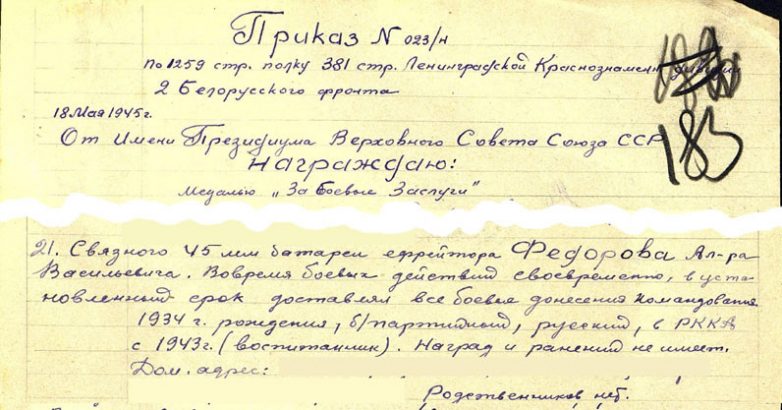 Приказ N 023/н
по 1259 стр. полку 381 стр. Ленинградской Краснознамен. дивизии
2 Белорусского фронта
18 Мая 1945г.
От Имени Президиума Верховного Совета Союза ССР
183
Награждаю:
Медалью „За Боевые Заслуги"
21. Связного 45 мм батареи ефрейтора Федорова Ал-ра
Васильевича. Вовремя боевых действий своевременно, в уста-
новленный срок доставлял все боевые донесения командования
1934 г. рождения, б/партийный, русский, в РККА
с 1943г. (воспитанник). Наград и ранений не имеет.
Дом. адрес:
Родственников нет.